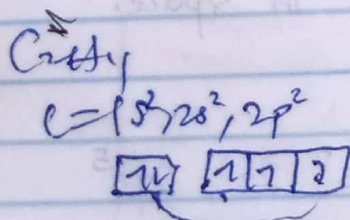 C₂H₄
C = 1s², 2s², 2p²
1↓ 1 1